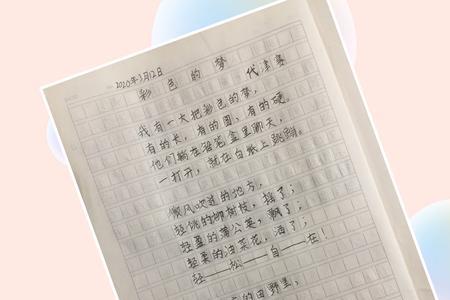 2020年3月12日
彩色的梦
代津睿
我有一大把彩色的梦，
有的长，有的圆，有的硬。
他们躺在铅笔盒里聊天，
一打开，就在白纸上跳蹦。
微风吹过的地方，
轻佻的柳树枝，摇了；
轻盈的蒲公英，飘了；
轻柔的油菜花，洒了；
轻——松——自——在！
的田野里，